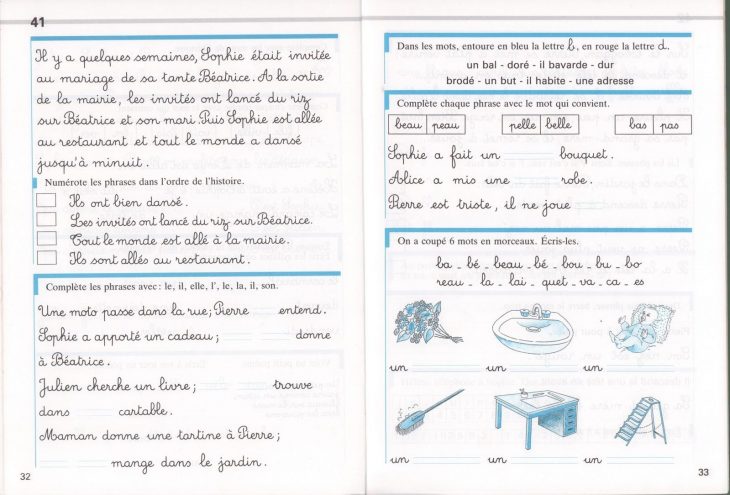 41
Il y a quelques semaines, Sophie était invitée
au mariage de sa tante Béatrice. A la sortie
de la mairie, les invités ont lancé du riz
sur Béatrice et son mari. Puis Sophie est allée
au restaurant et tout le monde a dansé
jusqu'à minuit.
Numérote les phrases dans l'ordre de l'histoire.
Ils ont bien dansé.
Les invités ont lancé du riz sur Béatrice.
Tout le monde est allé à la mairie.
Ils sont allés au restaurant.
Complète les phrases avec : le, il, elle, l', le, la, il, son.
Une moto passe dans la rue ; Pierre entend.
Sophie a apporté un cadeau ; donne
à Béatrice.
Julien cherche un livre ; trouve
dans cartable.
Maman donne une tartine à Pierre ;
mange dans le jardin.
32
Dans les mots, entoure en bleu la lettre b, en rouge la lettre d.
un bal - doré - il bavarde - dur
brodé - un but - il habite - une adresse
Complète chaque phrase avec le mot qui convient.
beau peau pelle belle bas pas
Sophie a fait un bouquet.
Alice a mis une robe.
Pierre est triste, il ne joue
On a coupé 6 mots en morceaux. Écris-les.
ba - bé - beau - bé - bou - bu - bo
reau - la - lai - quet - va - ca - es
un un un
un un un
33